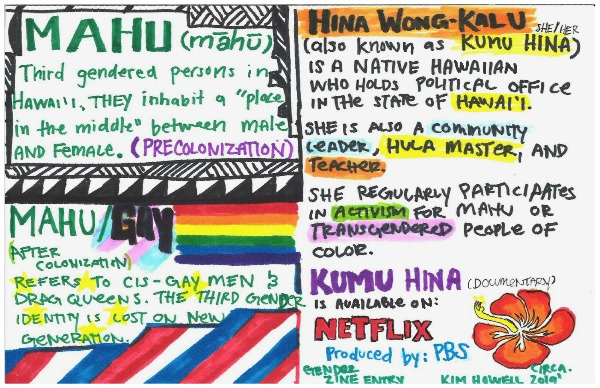 MAHU (māhū)
Third gendered persons in
HAWAI'I, THEY inhabit a "place
in the middle" between male
AND FEMALE. (PRECOLONIZATION)
MAHU/GAY
(AFTER
COLONIZATION)
REFERS TO CIS-GAY MEN &
DRAG QUEENS. THE THIRD GENDER
IDENTITY IS LOST ON NEW
GENERATION.
HINA WONG-KALU SHE/HER
(also known as KUMU HINA)
IS A NATIVE HAWAIIAN
WHO HOLDS POLITICAL OFFICE
IN THE STATE OF HAWAI'I.
SHE IS ALSO A COMMUNITY
LEADER, HULA MASTER, AND
TEACHER.
SHE REGULARLY PARTICIPATES
IN ACTIVISM FOR MAHU OR
TRANSGENDERED PEOPLE OF
COLOR.
KUMU HINA (DOCUMENTARY)
IS AVAILABLE ON:
NETFLIX
Produced by: PBS
GENDER CIRCA.
ZINE ENTRY KIM HOWELL 2019